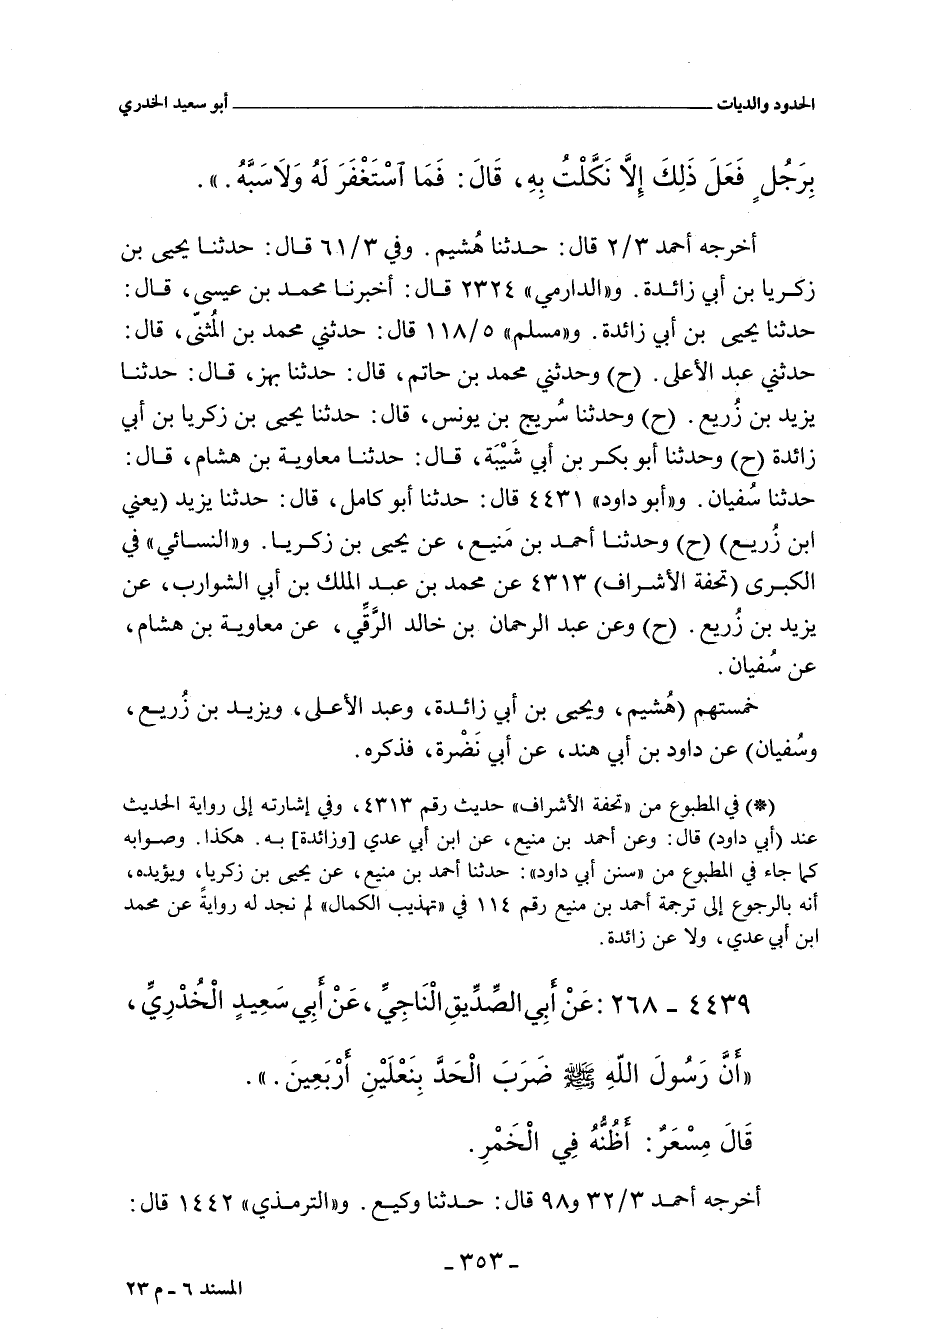 الحدود والديات ــــــــــــــــــــــــــــــــــــــــ أبو سعيد الخدري
بِرَجُلٍ فَعَلَ ذَلِكَ إِلاَّ نَكَّلْتُ بِهِ، قَالَ: فَمَا ٱسْتَغْفَرَ لَهُ وَلاَسَبَّهُ.».
أخرجه أحمد ٢/٣ قال: حدثنا هُشيم. وفي ٦١/٣ قال: حدثنا يحيى بن
زكريا بن أبي زائدة. و«الدارمي» ٢٣٢٤ قال: أخبرنا محمد بن عيسى، قال:
حدثنا يحيى بن أبي زائدة. و«مسلم» ١١٨/٥ قال: حدثني محمد بن المُثنّى، قال:
حدثني عبد الأعلى. (ح) وحدثني محمد بن حاتم، قال: حدثنا بهز، قال: حدثنا
يزيد بن زُريع. (ح) وحدثنا سُريج بن يونس، قال: حدثنا يحيى بن زكريا بن أبي
زائدة (ح) وحدثنا أبو بكر بن أبي شَيْبَة، قال: حدثنا معاوية بن هشام، قال:
حدثنا سُفيان. و«أبو داود» ٤٤٣١ قال: حدثنا أبو كامل، قال: حدثنا يزيد (يعني
ابن زُريع) (ح) وحدثنا أحمد بن مَنيع، عن يحيى بن زكريا. و«النسائي» في
الكبرى (تحفة الأشراف) ٤٣١٣ عن محمد بن عبد الملك بن أبي الشوارب، عن
يزيد بن زُريع. (ح) وعن عبد الرحمان بن خالد الرَّقِّي، عن معاوية بن هشام،
عن سُفيان.
خمستهم (هُشيم، ويحيى بن أبي زائدة، وعبد الأعلى، ويزيد بن زُريع،
وسُفيان) عن داود بن أبي هند، عن أبي نَضْرة، فذكره.
(*) في المطبوع من «تحفة الأشراف» حديث رقم ٤٣١٣، وفي إشارته إلى رواية الحديث
عند (أبي داود) قال: وعن أحمد بن منيع، عن ابن أبي عدي [وزائدة] به. هكذا. وصوابه
كما جاء في المطبوع من «سنن أبي داود»: حدثنا أحمد بن منيع، عن يحيى بن زكريا، ويؤيده،
أنه بالرجوع إلى ترجمة أحمد بن منيع رقم ١١٤ في «تهذيب الكمال» لم نجد له روايةً عن محمد
ابن أبي عدي، ولا عن زائدة.
٤٤٣٩ - ٢٦٨: عَنْ أَبِي الصِّدِّيقِ النَّاجِيِّ، عَنْ أَبِي سَعِيدٍ الْخُدْرِيِّ،
«أَنَّ رَسُولَ اللّهِ ﷺ ضَرَبَ الْحَدَّ بِنَعْلَيْنِ أَرْبَعِينَ.».
قَالَ مِسْعَرٌ: أَظُنُّهُ فِي الْخَمْرِ.
أخرجه أحمد ٣٢/٣ و٩٨ قال: حدثنا وكيع. و«الترمذي» ١٤٤٢ قال:
- ٣٥٣ -
المسند ٦ - م ٢٣